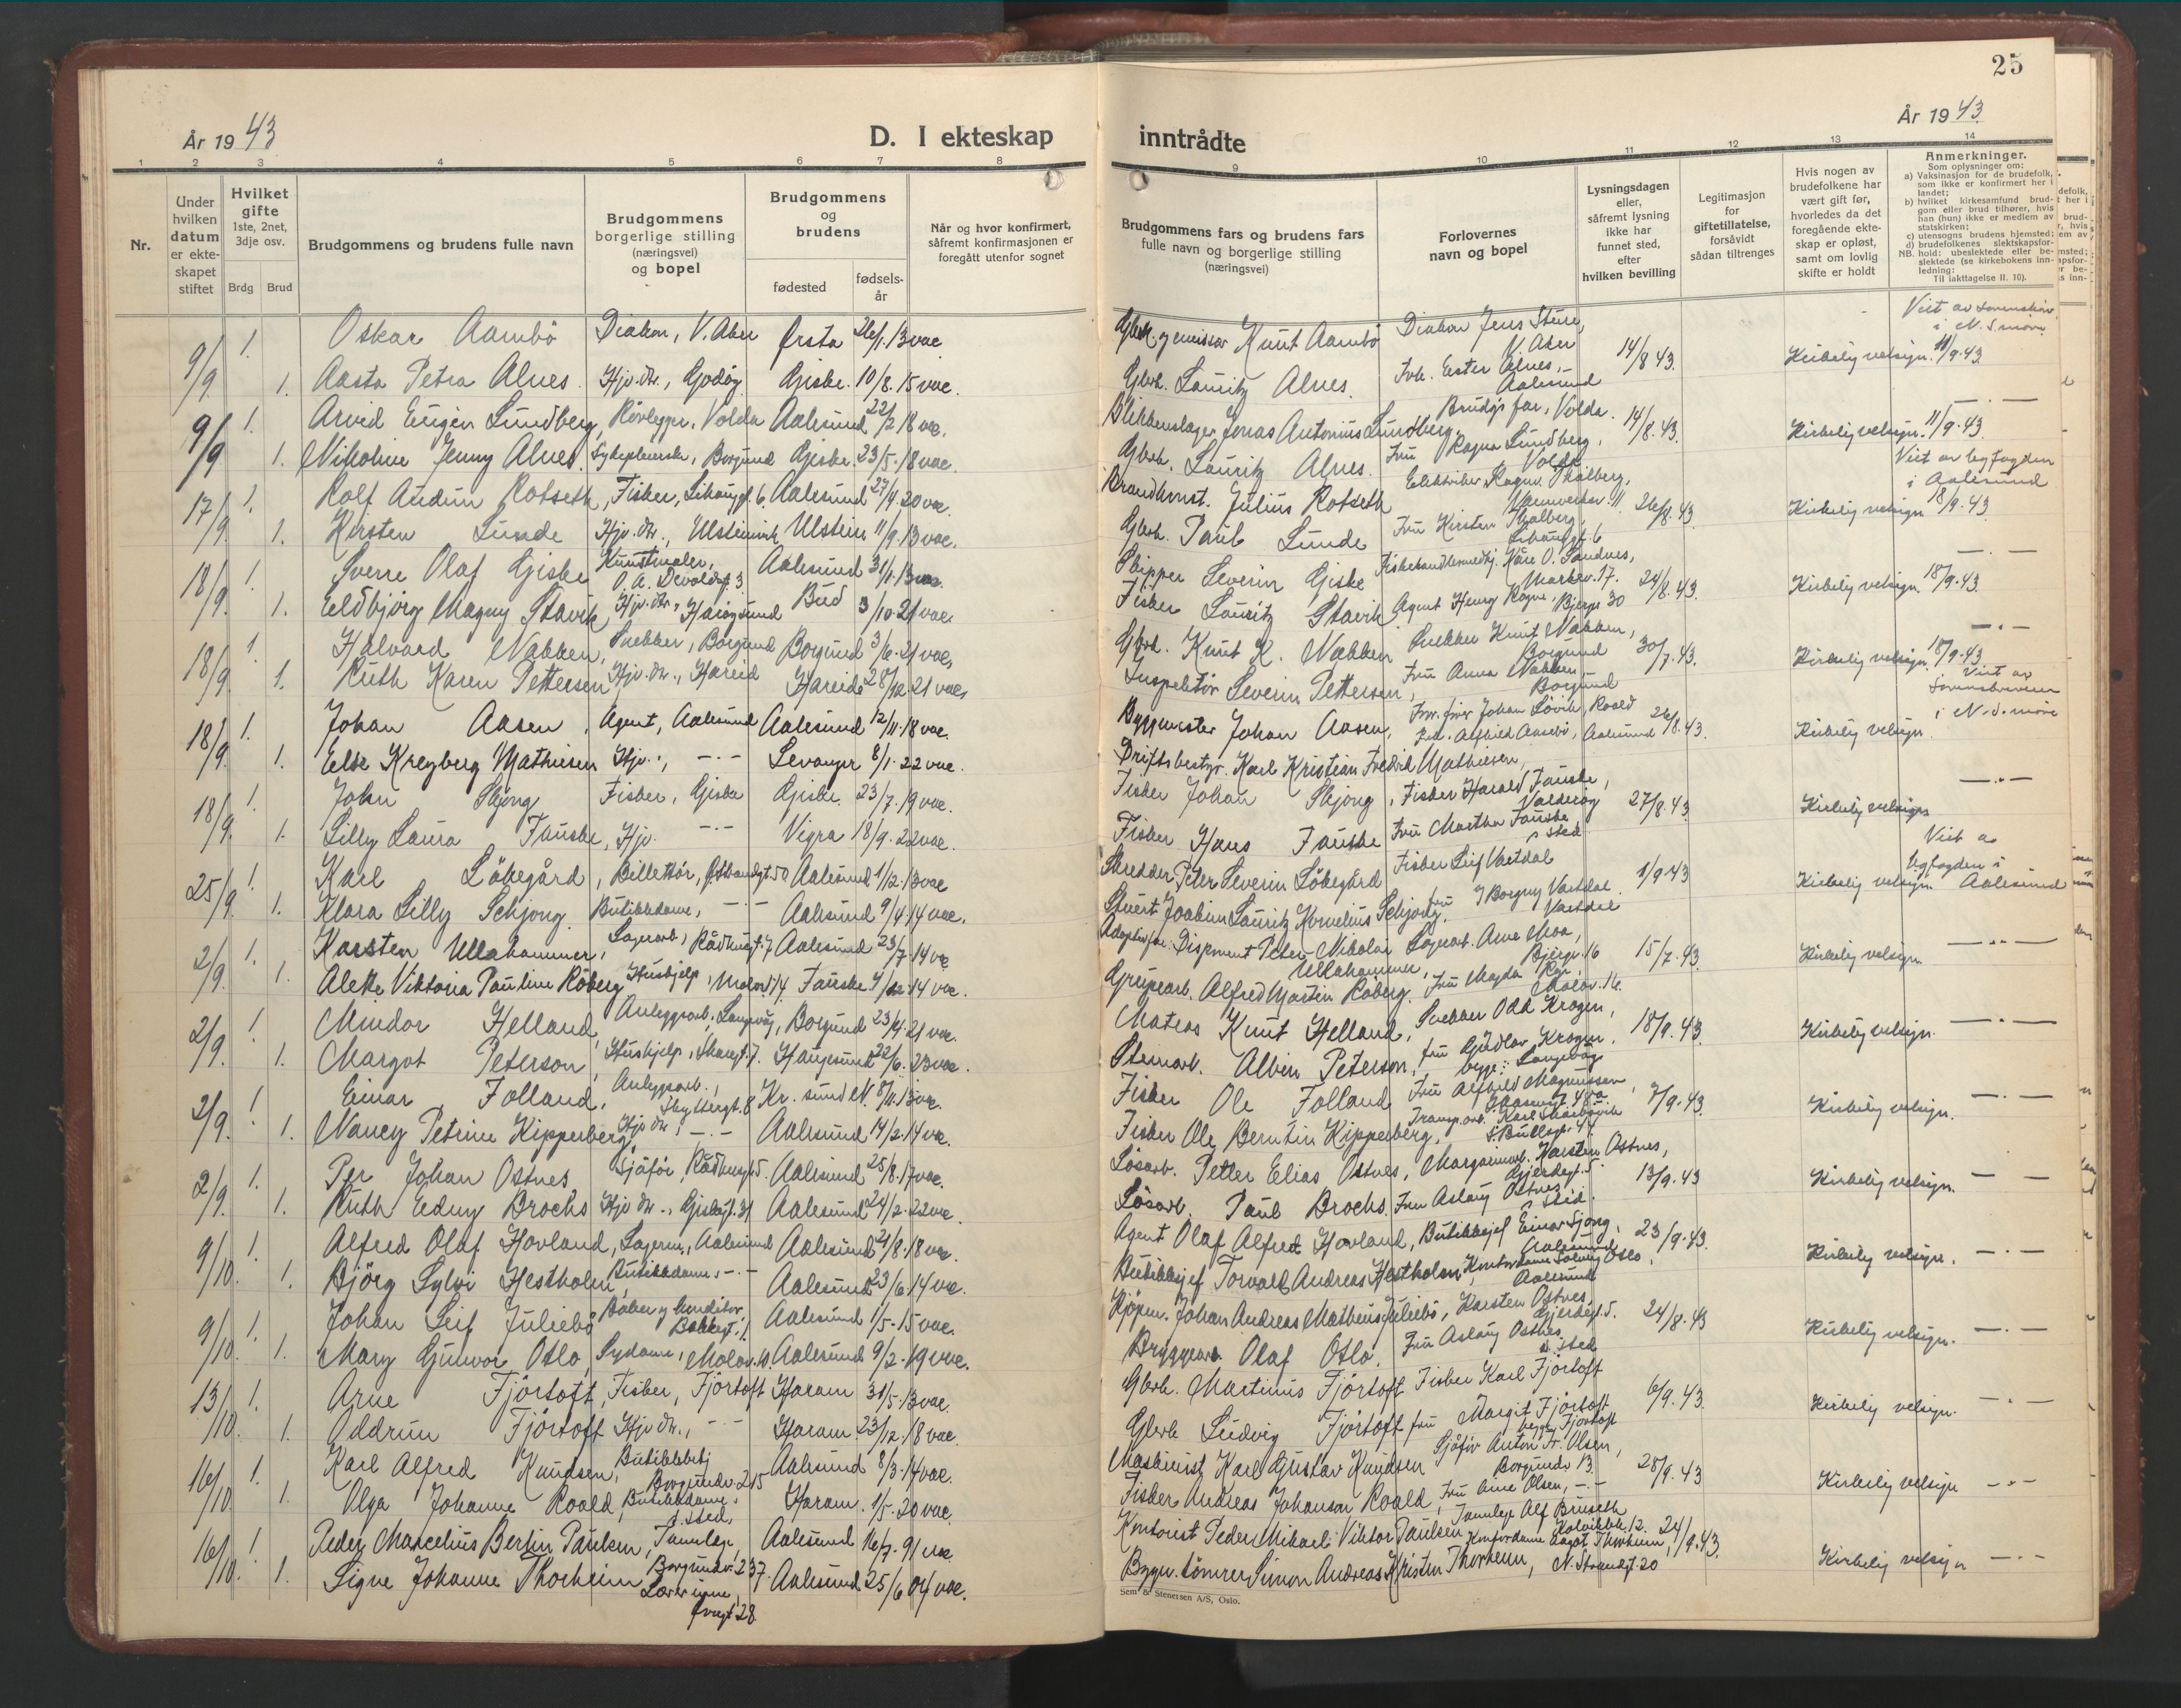 25
År 1943
År 1943
D. I ekteskap inntrådte
1 2 3 4 5 6 7 8 9 10 11 12 13 14
Nr.
Under hvilken datum er ekte-skapet stiftet
Hvilket gifte
1ste, 2net, 3dje osv.
Brdg Brud
Brudgommens og brudens fulle navn
Brudgommens borgerlige stilling (næringsvei) og bopel
Brudgommens og brudens
fødested
fødsels-år
Når og hvor konfirmert, såfremt konfirmasjonen er foregått utenfor sognet
Brudgommens fars og brudens fars fulle navn og borgerlige stilling (næringsvei)
Forlovernes navn og bopel
Lysningsdagen eller, såfremt lysning ikke har funnet sted, efter hvilken bevilling
Legitimasjon for giftetillatelse, forsåvidt sådan tiltrenges
Hvis nogen av brudefolkene har vært gift før, hvorledes da det foregående ekte-skap er opløst, samt om lovlig skifte er holdt
Anmerkninger.
Som oplysninger om:
a) Vaksinasjon for de brudefolk, som ikke er konfirmert her i landet;
b) hvilket kirkesamfund brud-gom eller brud tilhører, hvis han (hun) ikke er medlem av statskirken;
c) utensogns brudens hjemsted;
d) brudefolkenes slektskapsfor-hold: ubeslektede eller be-slektede (se kirkebokens inn-ledning:
NB. Til iakttagelse II. 10).
9/9. 1. Oskar Aambö Diakon, V. Aker Ørsta 26/1.13 vac. Gbrk. og emissær Knut Aambö Diakon Jens Støre, V. Aker 14/8 43. Kirkelig velsign. 11/9.43.
1. Aasta Petra Alnes. Hjv. dtr., Godöy Giske. 10/8.15 vac. Gbrk. Lauritz Alnes. Frk. Ester Alnes, Aalesund
9/9 1. Arvid Eugen Lundberg, Rörlegger, Volda Aalesund 22/2 18 vac. Blikkenslager Jonas Antonius Lundberg. Brudgs far, Volda. 14/8.43. Kirkelig velsign. 11/9.43.
1. Nikoline Jenny Alnes. Sykepleierske, Borgund Giske. 23/5.18 vac. Gbrk. Lauritz Alnes. Fru Ragna Lundberg, Volda
17/9. 1. Rolf Audun Rotseth, Fisker, Aalesund 27/4.20 vac. Brandkonst. Julius Rotseth 26/8.43. Kirkelig velsign 18/9.43.
1. Kirsten Lunde Hjv. dtr., Ulsteinvik Ulstein 11/9.13 vac. Gbrk. Paul Lunde Fru Kirsten
18/9. 1. Sverre Olaf Giske Kunstmaler, O. A. Devoldsgt. 3 Aalesund 31/1.13 vac. Skipper Severin Giske Kåre O. Sandnes, Markev. 17. 24/8.43. Kirkelig velsign. 18/9.43.
1. Eldbjörg Magny Stavik Hjv. dtr., Bud 3/10.21 vac. Fisker Lauritz Stavik Agent Henry Rogne, Bjergt 30
18/9. 1. Halvard Nakken, Snekker, Borgund Borgund 3/6.21 vac. Gbrk. Knut K. Nakken Snekker Knut Nakken, Borgund 30/7.43. Kirkelig velsign. 18/9.43.
1. Ruth Karen Pettersen Hjv. dtr., Hareid Hareide 28/12.21 vac. Inspektör Severin Pettersen, Fru Anna Nakken Borgund
18/9. 1. Johan Aasen, Agent, Aalesund Aalesund 12/11.18 vac. Byggmester Johan Aasen, 26/8.43. Kirkelig velsign.
1. Else Kreyberg Mathiesen Hjv., — Levanger 8/1.22 vac. Driftsbestyr. Karl Kristian Fredrik Mathiesen,
18/9. 1. John Skjong Fisker, Giske Giske. 23/7.19 vac. Fisker Johan Skjong, Fisker Harald Fauske, Valderöy 27/8.43 Kirkelig velsign
1. Lilly Laura Fauske, Hjv. — Vigra 18/9.22 vac. Fisker Hans Fauske Fru Martha Fauske s. sted
25/9. 1. Karl Lökegård, Billettör, Aalesund 1/2.13 vac Skredder Peter Severin Lökegård Fisker Leif Vartdal 1/9.43 Kirkelig velsign. Aalesund
1. Klara Lilly Schjong. Butikkdame, — Aalesund 9/4.14 vac. Stuert Joakim Lauritz Kornelius Schjong. Fru Borgny Vartdal. Vartdal
2/9. 1. Karsten Ullahammer, Lagerarb., Rådhusgt. 7 Aalesund 23/7.14 vac Adoptivfar: Disponent Peter Nikolai Ullahammer, Lagerarb. Arne Moa, Bjergt. 16 15/7.43. Kirkelig velsign.
1. Alette Viktoria Pauline Röberg Hushjelp, Fauske 4/12.14 vac. Grubearb. Alfred Martin Röberg. Fru Magda
2/9. 1. Mindor Helland, Anleggsarb., Langevåg, Borgund 23/4.21 vac. Matros Knut Helland, Snekker Odd Krogen, 18/9.43. Kirkelig velsign.
1. Margot Peterson, Hushjelp, Haugesund 22/6.23 vac. Steinarb. Albin Peterson, fru Gudlov Krogen. begge: Langevåg
2/9. 1. Einar Folland, Anleggsarb., Skyttergt. 8 Kr. sund N. 8/11.13 vac. Fisker Ole Folland Fru Alfhild Magnussen, 7/9.43. Kirkelig velsign.
1. Nancy Petrine Kipperberg, Hjv. dtr., — Aalesund 14/2.14 vac. Fisker Ole Berntin Kipperberg, Transp. arb. Karl
2/9. 1. Per Johan Ostnes Sjåför, Rådhusgt 5. Aalesund 25/8.17 vac. Lösarb. Petter Elias Ostnes, Margarinarb. Karsten Ostnes, Gjerdegt. 5. 13/9.43 Kirkelig velsign.
1. Ruth Edny Brochs Hjv dtr., Giskegt. 31 Aalesund 24/2.22 vac. Lösarb. Paul Brochs. Fru Aslaug Ostnes s. sted.
9/10. 1. Alfred Olaf Hovland, Lagerm., Aalesund Aalesund 21/8.18 vac. Agent Olaf Alfred Hovland, Butikksjef Einar Sjong, Aalesund 23/9.43. Kirkelig velsign.
1. Björg Sylvi Hestholm, Butikkdame, — Aalesund 23/6.14 vac. Butikksjef Torvald Andreas Hestholm, Kontordame Solveig Otlo, Aalesund
9/10. 1. Johan Leif Juliebö Baker og konditor, Bakkegt. 1. Aalesund 1/5.15 vac. Kjöpm. Johan Andreas Matheus Juliebö, Karsten Ostnes, Gjerdegt. 5. 24/8.43 Kirkelig velsign.
1. Mary Gunvor Otlo, Sydame, Molov. 10 Aalesund 9/2.19 vac. Bryggearb. Olaf Otlo. Fru Aslaug Ostnes s. sted
13/10. 1. Arne Fjörtoft, Fisker, Fjörtoft Haram 31/5.13 vac. Gbrk. Martinus Fjörtoft Fisker Karl Fjörtoft 6/9.43. Kirkelig velsign.
1. Oddrun Fjörtoft Hjv dtr., — Haram. 23/12.18 vac. Gbrk Ludvig Fjörtoft fru Margit Fjörtoft begge Fjörtoft
16/10 1. Karl Alfred Knudsen, Borgundv. 215 Aalesund 8/3.14 vac. Maskinist Karl Gustav Knudsen Sjåför Anton Fr. Olsen, Borgundv 13. 28/9.43 Kirkelig velsign
1. Olga Johanne Roald, Butikkdame, s. sted. Haram. 1/5.20 vac. Fisker Andreas Johanson Roald, Fru Aine Olsen, —
16/10. 1. Peder Marcelius Bertin Paulsen, Tannlege, Borgundv. 237. Aalesund 16/7.91 vac Kontorist Peder Mikael Viktor Paulsen Tannlege Alf Bruseth 24/9.43. Kirkelig velsign
1. Signe Johanne Thorheim Lærerinne, Aalesund 25/6 04 vac. Byggm. tömrer Simon Andreas Kristen Thorheim, Kontordame Aagot Thorheim, N. Strandgt. 20
Sem & Stenersen A/S, Oslo.